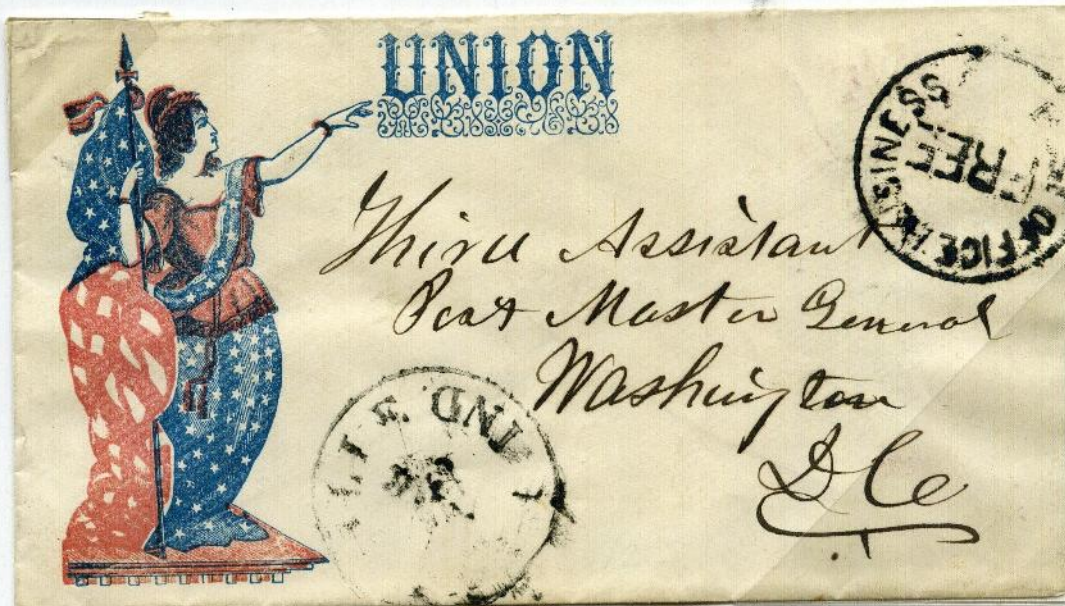 UNION
OFFICE BUSINESS
FREE
Third Assistant
Post Master General
Washington
D C
IND